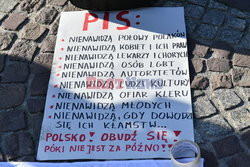 PIS:
• NIENAWIDZĄ POŁOWY POLAKÓW
• NIENAWIDZĄ KOBIET I ICH PRAW
• NIENAWIDZĄ LEKARZY I CHORYCH
• NIENAWIDZĄ OSÓB LGBT
• NIENAWIDZĄ AUTORYTETÓW
• NIENAWIDZĄ LUDZI KULTURY
• NIENAWIDZĄ OFIAR KLERU
• NIENAWIDZĄ MŁODYCH
• NIENAWIDZĄ, GDY DOWODZI
SIĘ ICH KŁAMSTW...
POLSKO! OBUDŹ SIĘ!
PÓKI NIE JEST ZA PÓŹNO!!!